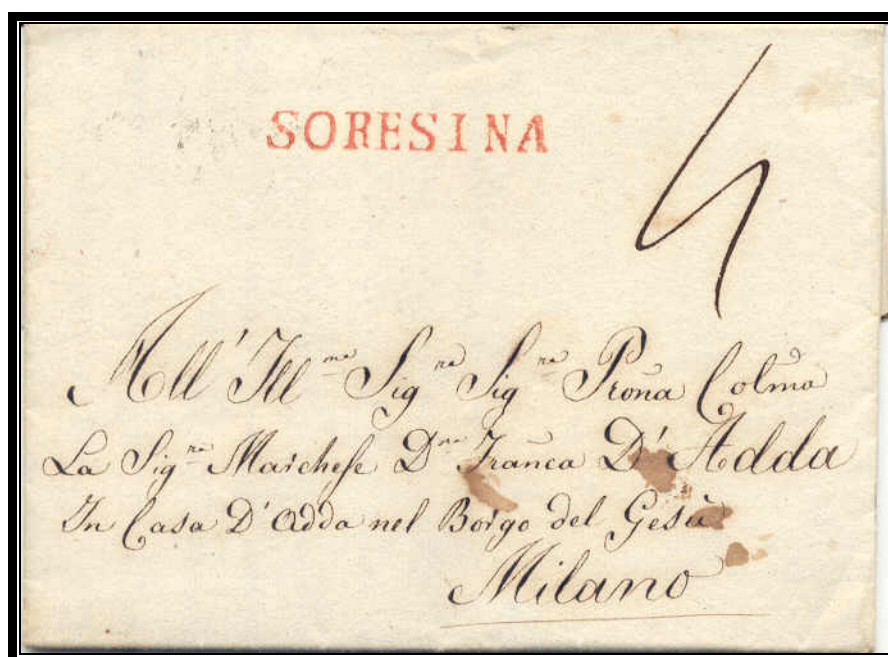 SORESINA
4
All' Ill.ma Sig.ra Sig.ra P̃rona Colma
La Sig.ra Marchese D.na Franca D'Adda
In Casa D'Adda nel Borgo del Gesù
Milano